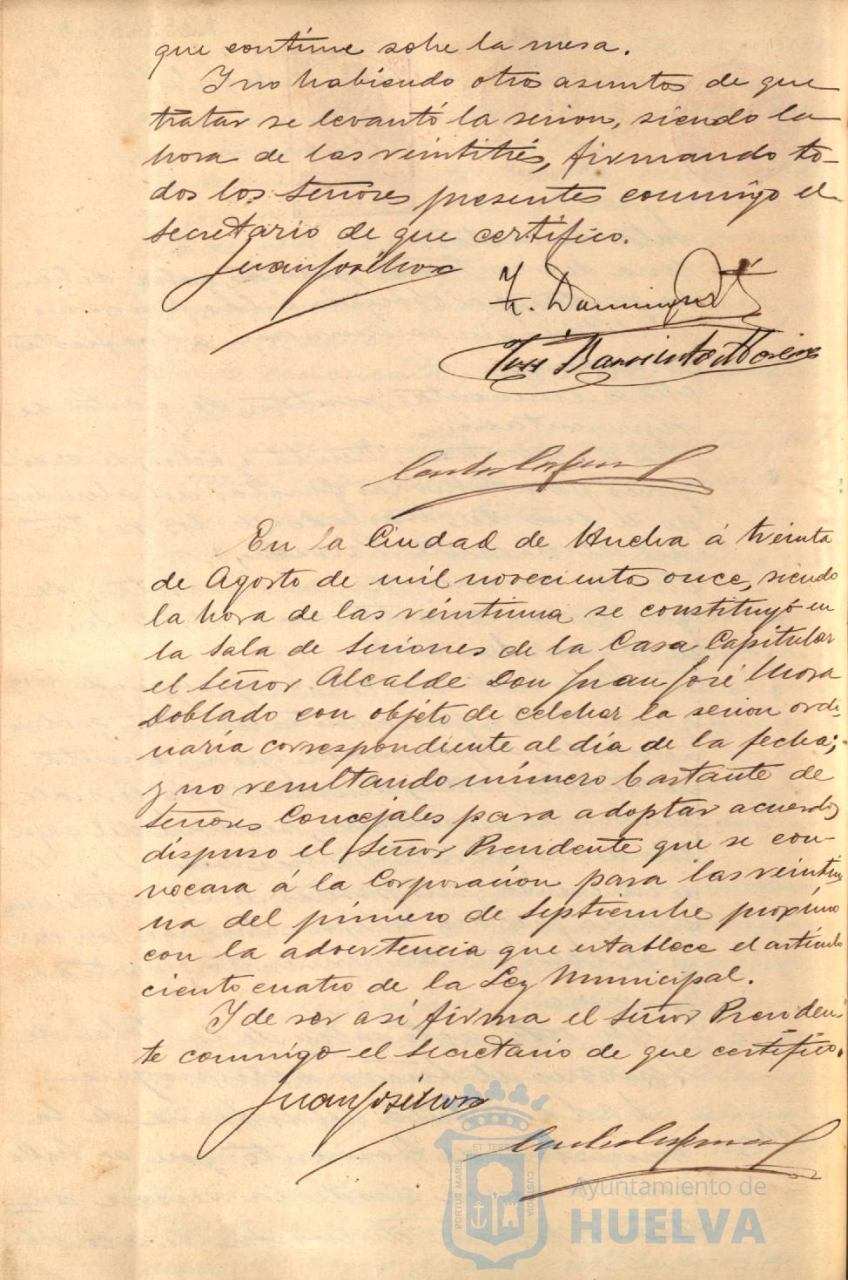 que continue sobre la mesa.
Y no habiendo otros asuntos de que
tratar se levantó la sesion, siendo la
hora de las veintitrés, firmando to-
dos los señores presentes conmigo el
secretario de que certifico.
Juan José Mora
F. Domínguez
José Barrientos Moreno
En la Ciudad de Huelva á treinta
de Agosto de mil novecientos once, siendo
la hora de las veintiuna se constituyó en
la Sala de Sesiones de la Casa Capitular
el Señor Alcalde Don Juan José Mora
Doblado con objeto de celebrar la sesion ordi-
naria correspondiente al día de la fecha;
y no resultando número bastante de
señores Concejales para adoptar acuerdos,
dispuso el Señor Presidente que se con-
vocara á la Corporacion para las veintiu
na del primero de Septiembre próximo
con la advertencia que establece el artículo
ciento cuatro de la Ley Municipal.
Y de ser así firma el Señor Presiden-
te conmigo el Secretario de que certifico.
Juan José Mora
PORTUS MARIS ET TERRAE CUSTODIA
Ayuntamiento de
HUELVA